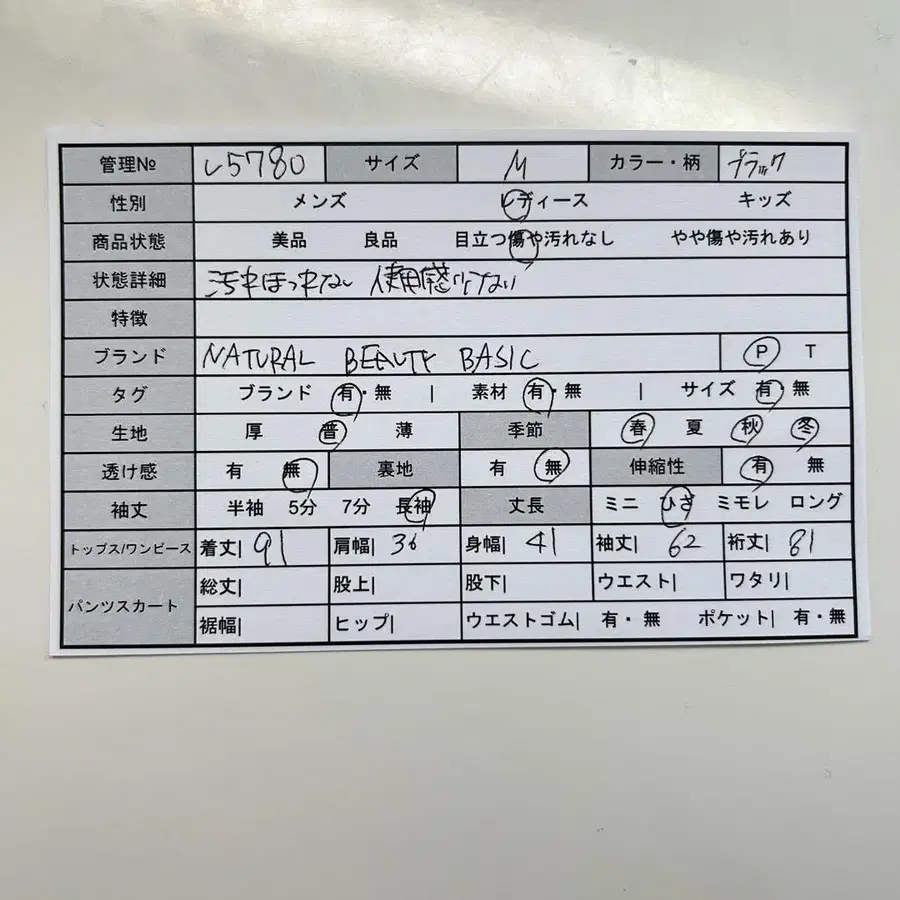 管理№ レ5780 サイズ M カラー・柄 ブラック
性別 メンズ レディース キッズ
商品状態 美品 良品 目立つ傷や汚れなし やや傷や汚れあり
状態詳細 汚れほつれなし 使用感少ない
特徴
ブランド NATURAL BEAUTY BASIC P T
タグ ブランド 有・無 | 素材 有・無 | サイズ 有・無
生地 厚 普 薄 季節 春 夏 秋 冬
透け感 有 無 裏地 有 無 伸縮性 有 無
袖丈 半袖 5分 7分 長袖 丈長 ミニ ひざ ミモレ ロング
トップス/ワンピース 着丈| 91 肩幅| 36 身幅| 41 袖丈| 62 裄丈| 81
パンツスカート 総丈| 股上| 股下| ウエスト| ワタリ|
裾幅| ヒップ| ウエストゴム| 有・無 ポケット| 有・無